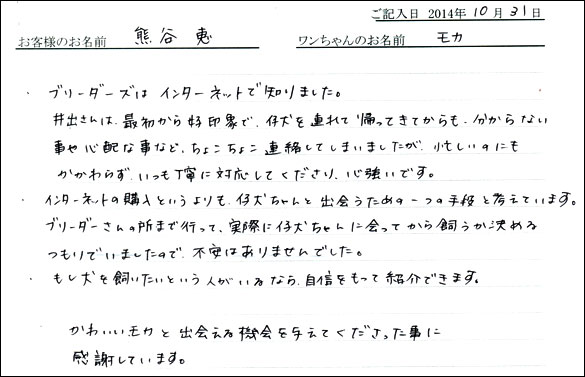 ご記入日 2014年 10月 31日
お客様のお名前 熊谷 恵 ワンちゃんのお名前 モカ
・ ブリーダーズは インターネットで知りました。
井出さんは、最初から好印象で、仔犬を連れて帰ってきてからも、分からない
事や心配な事など、ちょこちょこ連絡してしまいましたが、お忙しいのにも
かかわらず、いつも丁寧に対応してくださり、心強いです。
・ インターネットの購入というよりも、仔犬ちゃんと出会うための一つの手段と考えています。
ブリーダーさんの所まで行って、実際に仔犬ちゃんに会ってから飼うか決める
つもりでいましたので、不安はありませんでした。
・ もし犬を飼いたいという人がいるなら、自信をもって紹介できます。
かわいいモカと出会える機会を与えてくださった事に
感謝しています。